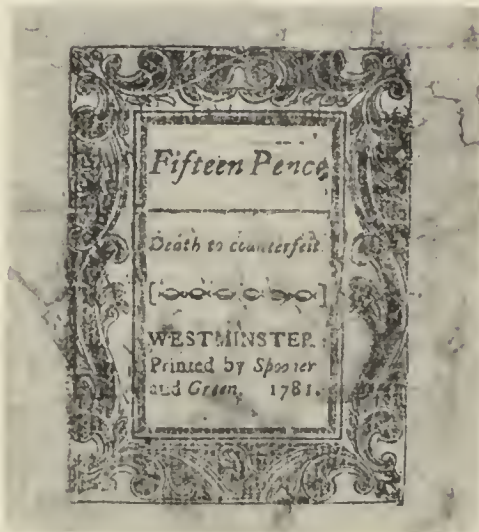 Fifteen Pence
Death to counterfeit.
WESTMINSTER:
Printed by Spooner
and Green, 1781.